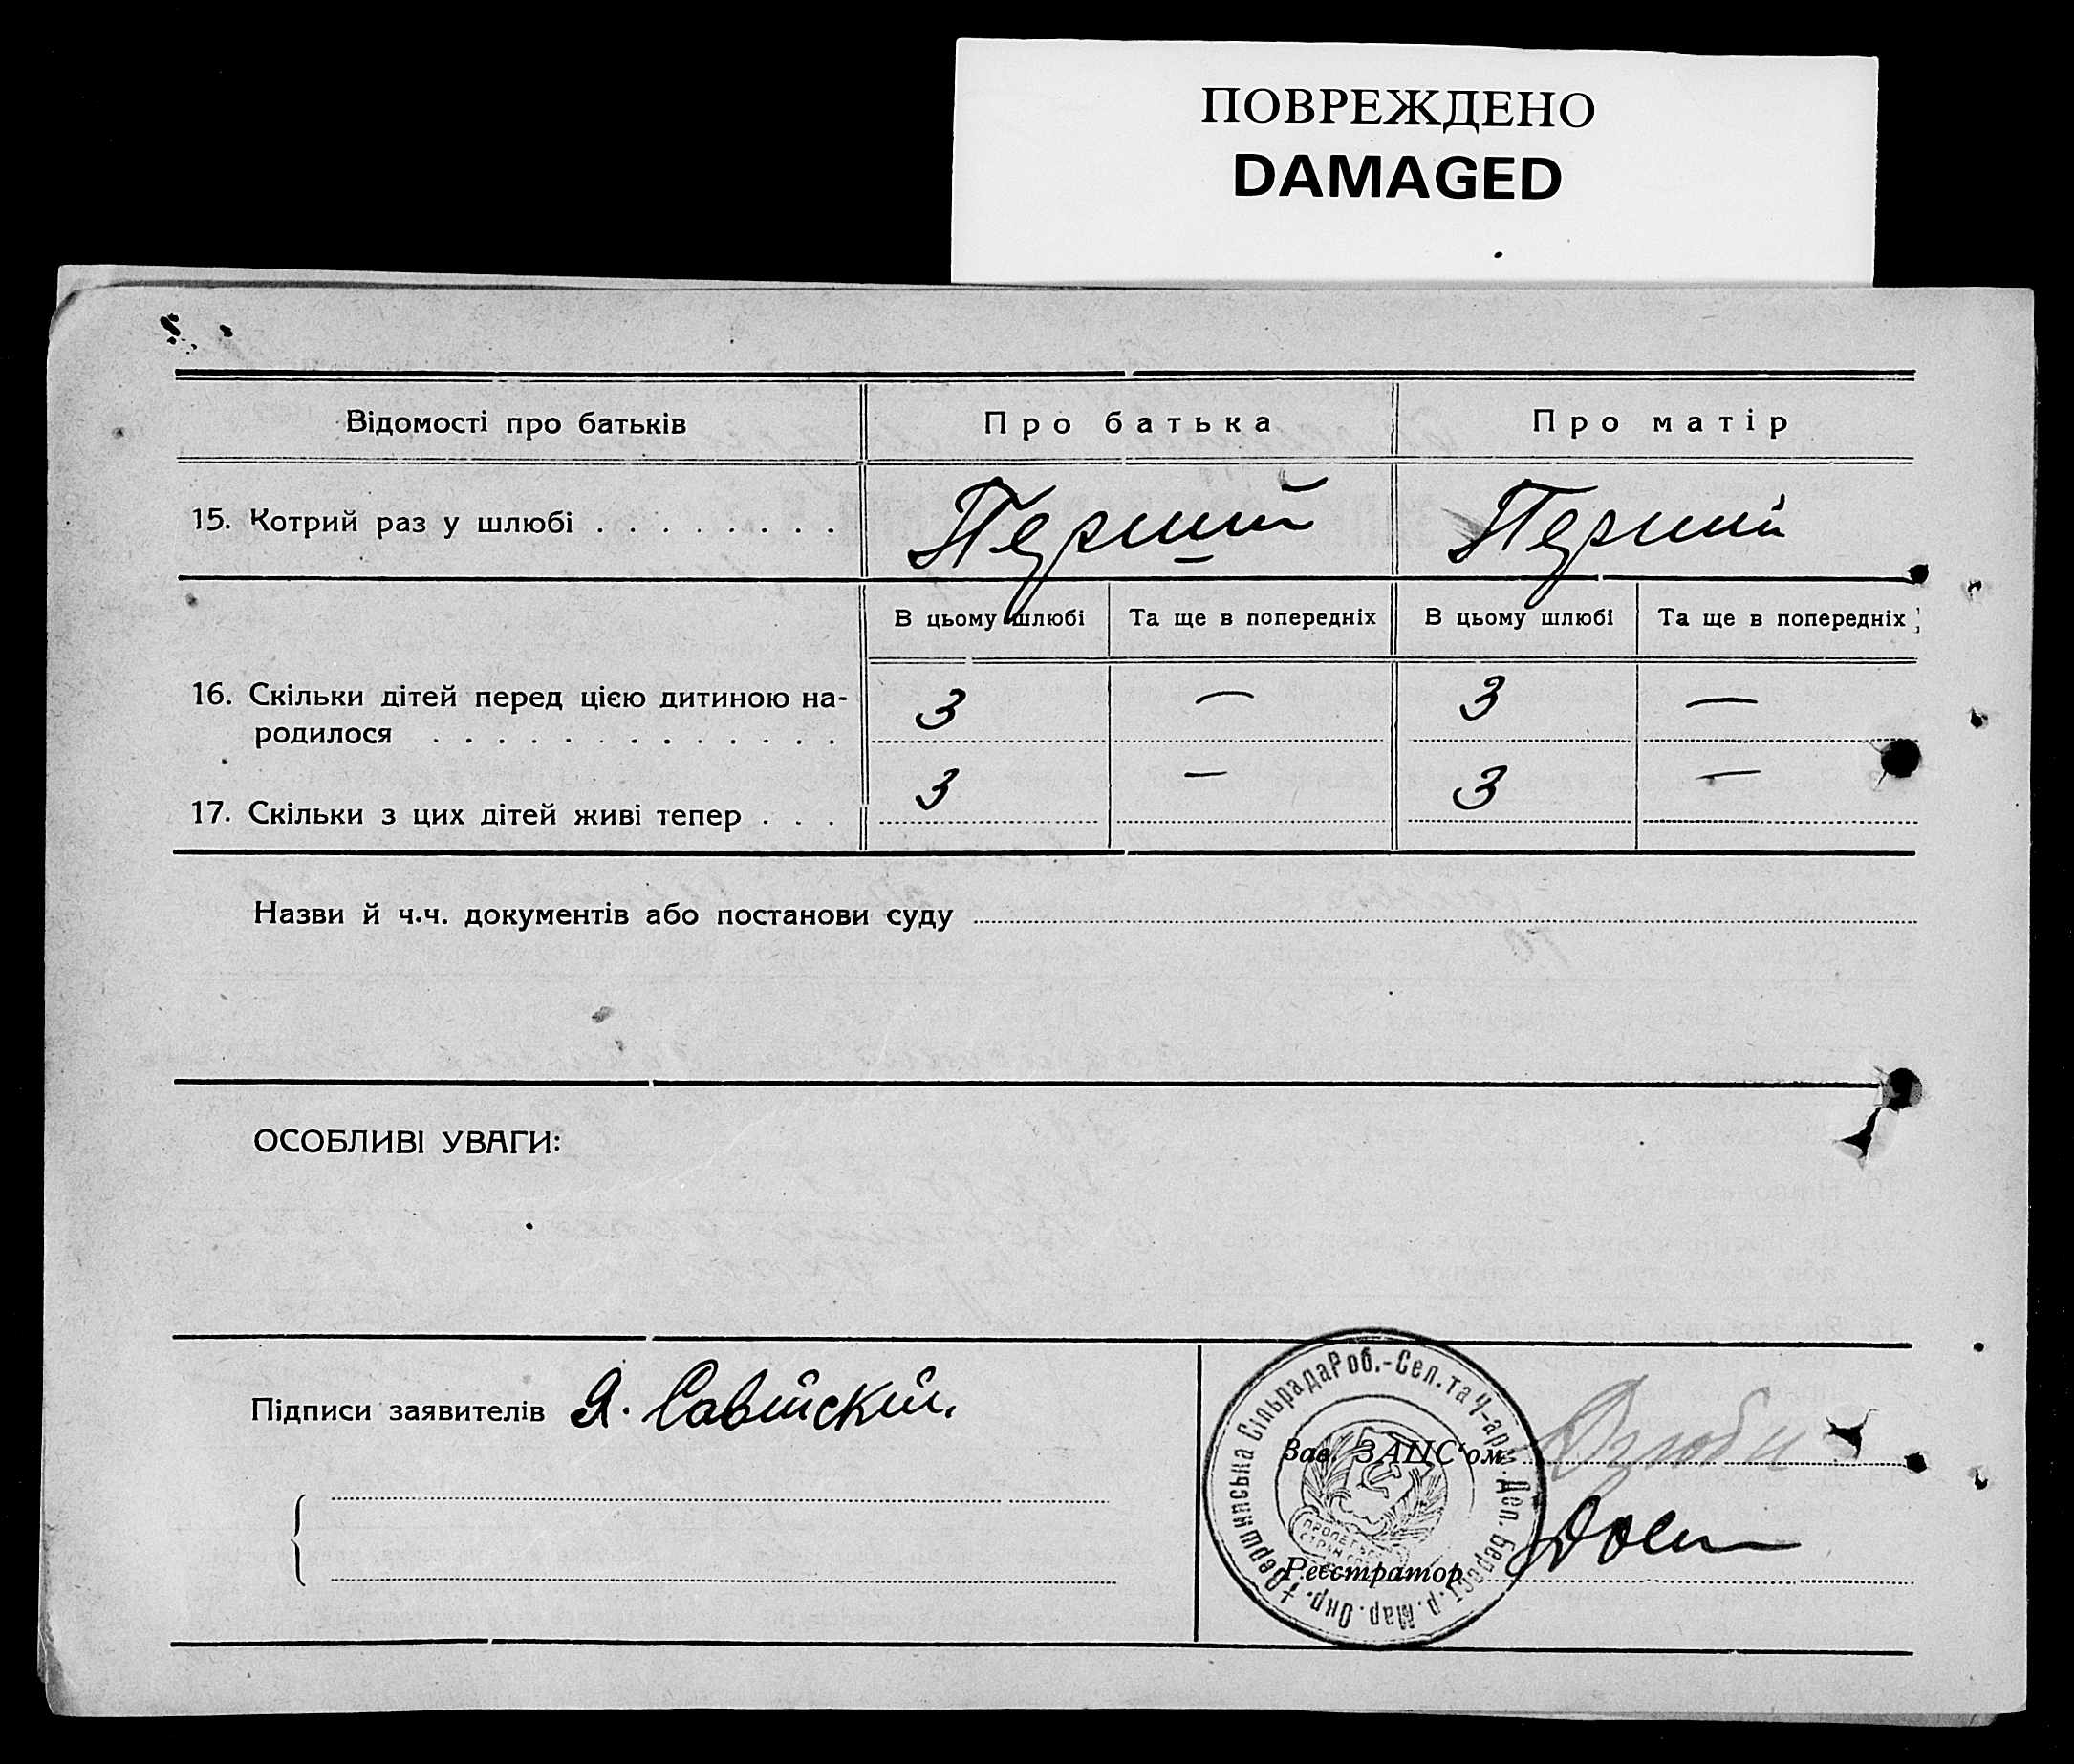 ПОВРЕЖДЕНО
DAMAGED
Відомості про батьків
Про батька
Про матір
15. Котрий раз у шлюбі . . . . . . . .
Перший
Перший
В цьому шлюбі
Та ще в попередніх
В цьому шлюбі
Та ще в попередніх
16. Скільки дітей перед цією дитиною на-
родилося . . . . . . . . . . . . .
3
—
3
—
17. Скільки з цих дітей живі тепер . . .
3
—
3
—
Назви й ч.ч. документів або постанови суду
ОСОБЛИВІ УВАГИ:
Підписи заявителів Я. Савійский.
Зав. ЗАЦС'ом
Реєстратор
Сільрада Роб.-Сел. та Ч-арм. Деп. Берест. р. Мар. Окр.